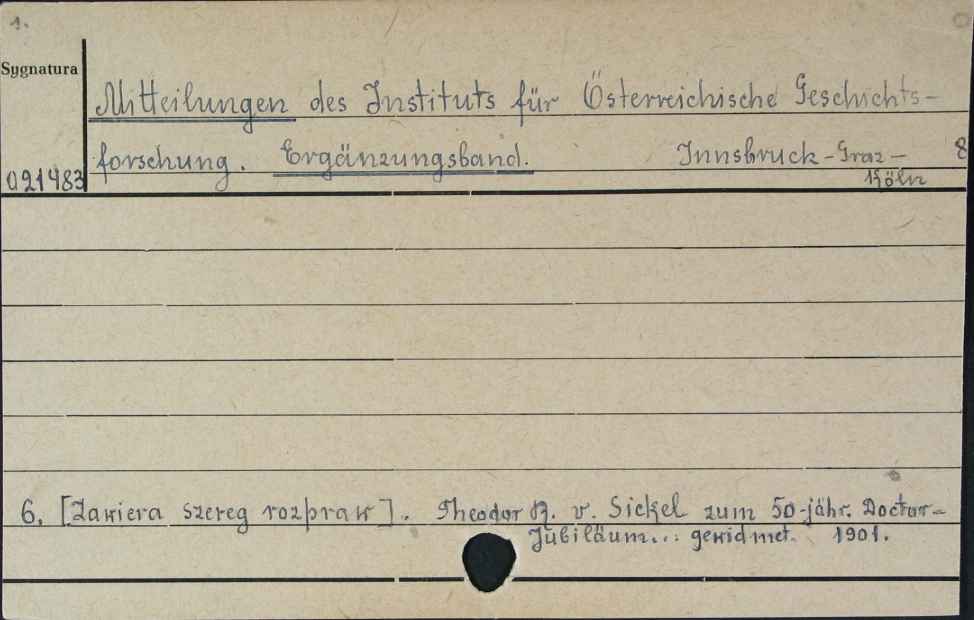 1.
Sygnatura
Mitteilungen des Instituts für Österreichische Geschichts-
forschung. Ergänzungsband. Innsbruck - Graz - 8
Köln
021483
6. [Zawiera szereg rozpraw]. Theodor R. v. Sickel zum 50-jähr. Doctor-
Jubiläum... gewidmet. 1901.